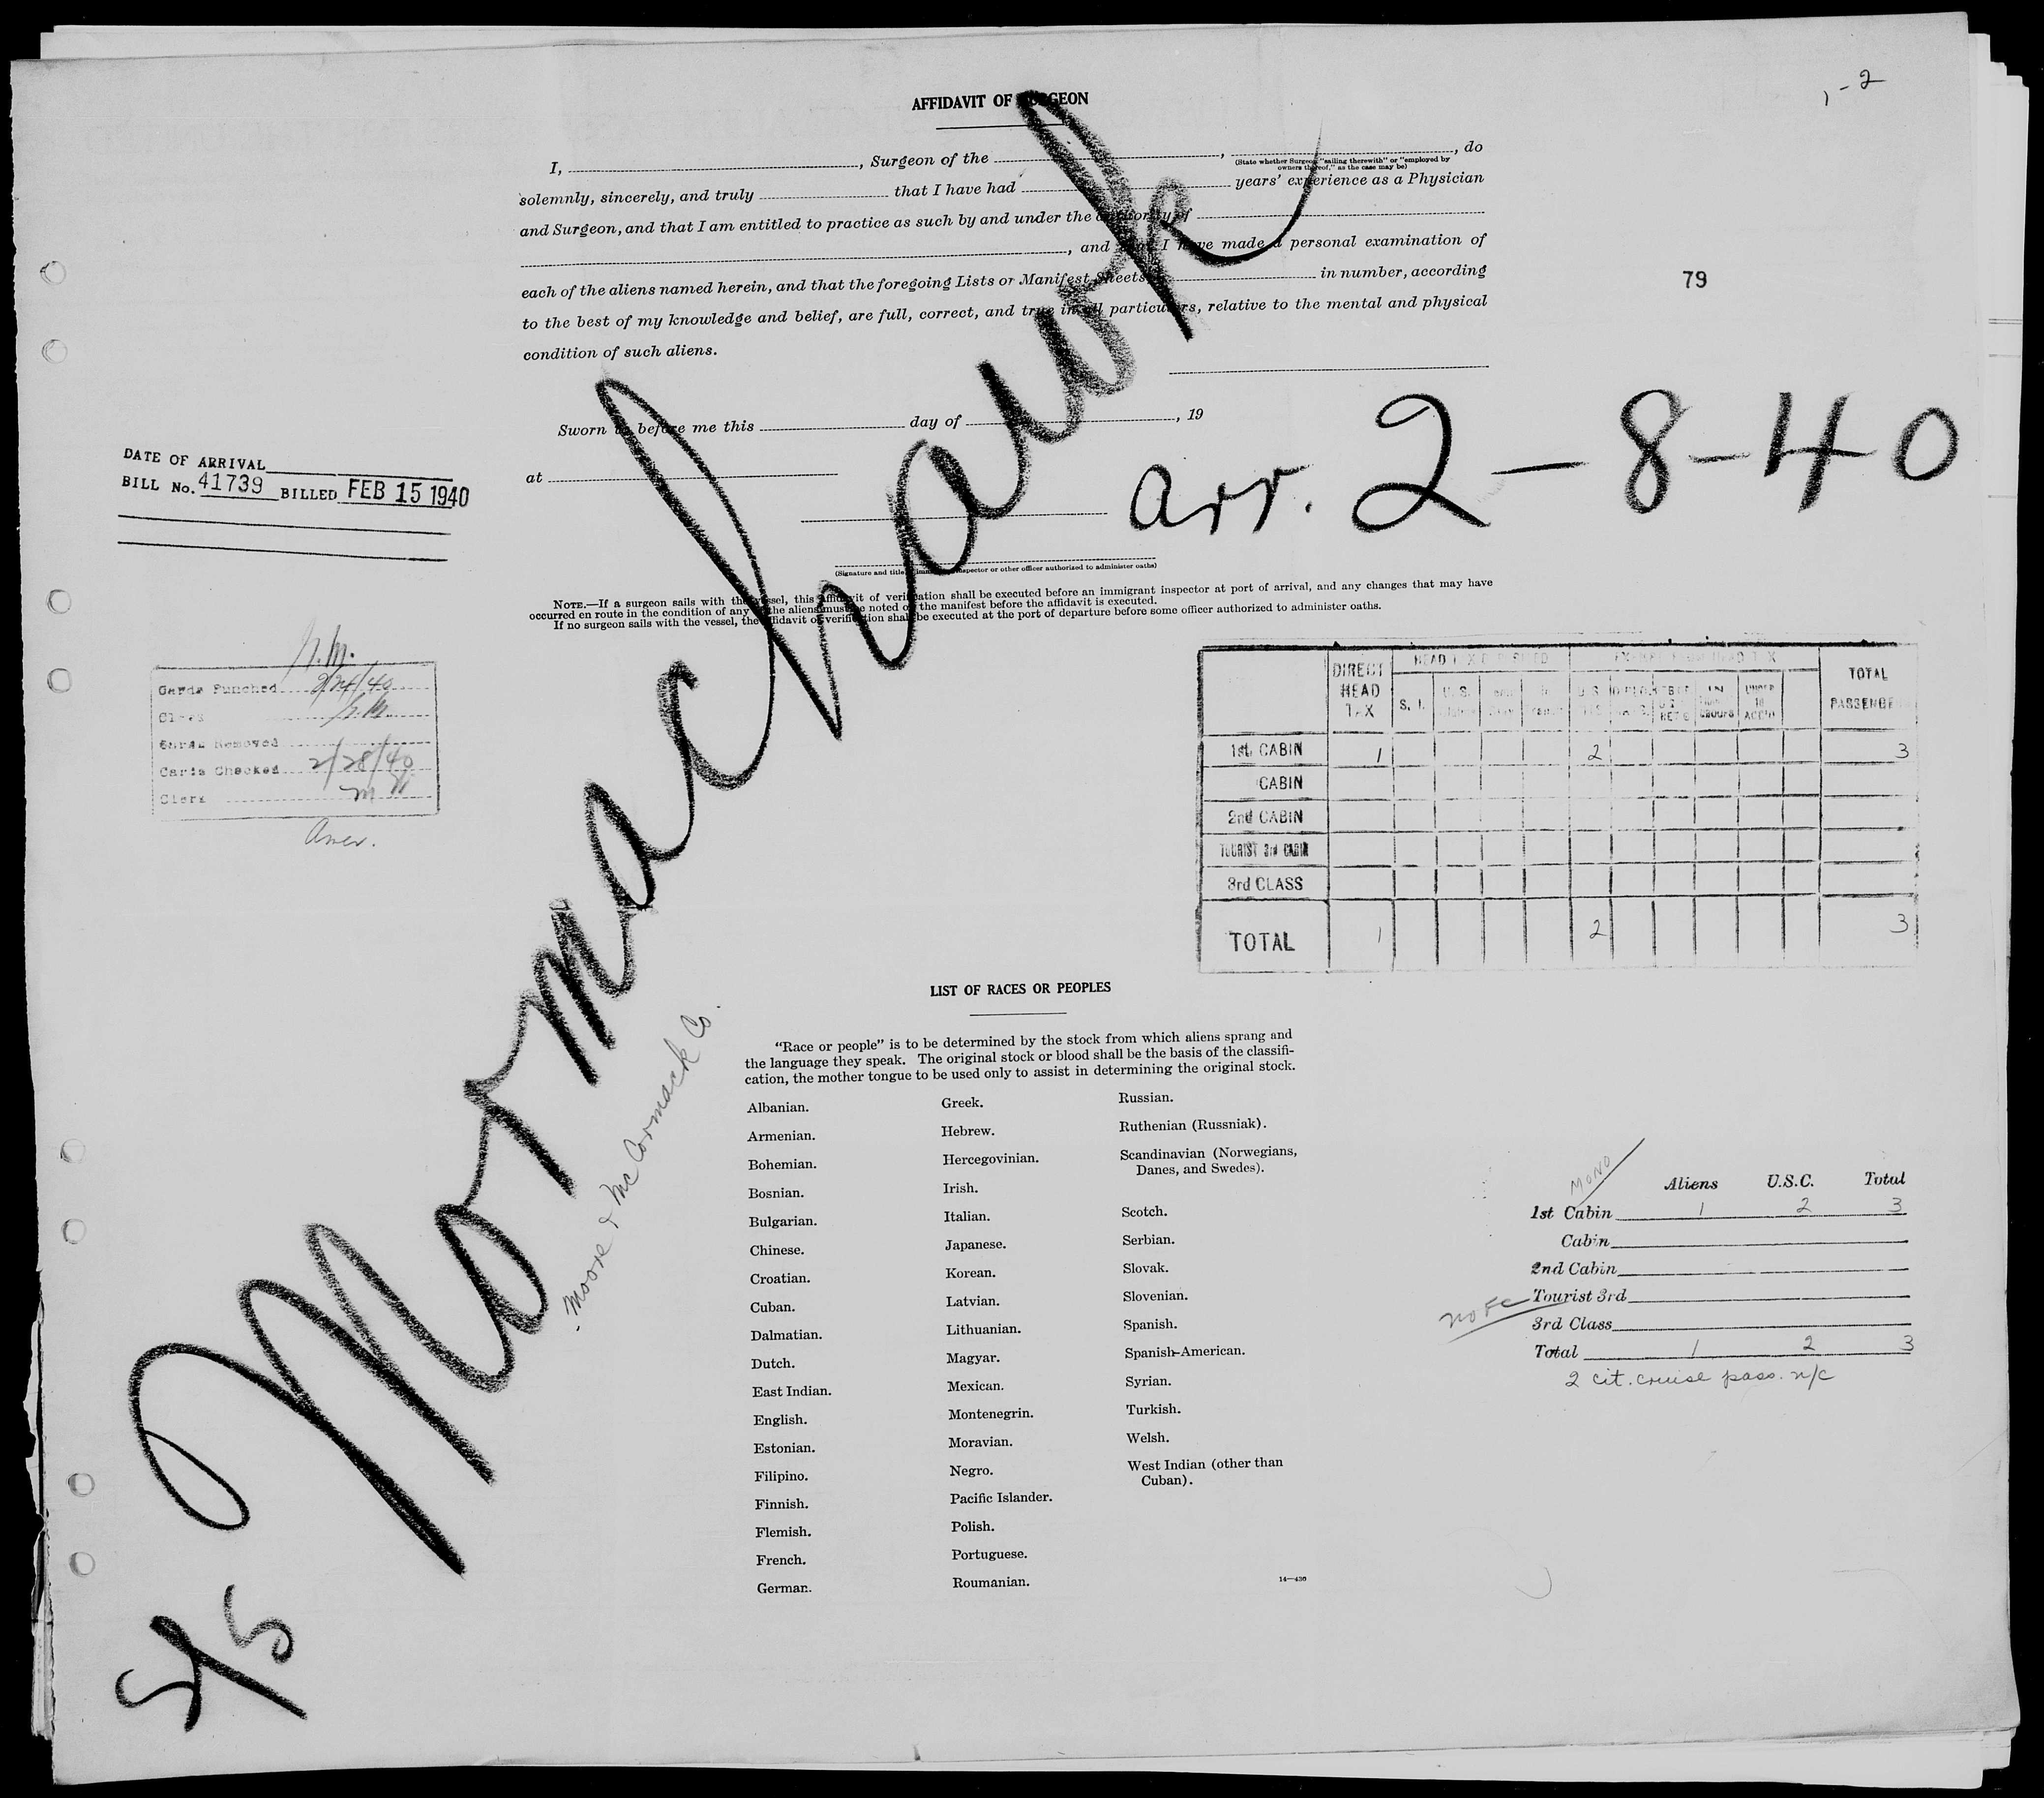 1-2
AFFIDAVIT OF SURGEON
I, , Surgeon of the , , do
(State whether Surgeon "sailing therewith" or "employed by
owners thereof," as the case may be)
solemnly, sincerely, and truly that I have had years' experience as a Physician
and Surgeon, and that I am entitled to practice as such by and under the authority of
, and that I have made a personal examination of
each of the aliens named herein, and that the foregoing Lists or Manifest Sheets, in number, according
to the best of my knowledge and belief, are full, correct, and true in all particulars, relative to the mental and physical
condition of such aliens.
79
Sworn to before me this day of , 19
at
arr. 2-8-40
DATE OF ARRIVAL
BILL No. 41739 BILLED FEB 15 1940
(Signature and title of immigrant inspector or other officer authorized to administer oaths)
NOTE.—If a surgeon sails with the vessel, this affidavit of verification shall be executed before an immigrant inspector at port of arrival, and any changes that may have
occurred en route in the condition of any of the aliens must be noted on the manifest before the affidavit is executed.
If no surgeon sails with the vessel, the affidavit of verification shall be executed at the port of departure before some officer authorized to administer oaths.
S/S Mormachawk
Moore & McCormack Co.
Cards Punched 2/24/40
Clerk
Cards Removed
Cards Checked 2/28/40
Clerk
DIRECT HEAD TAX
S. I.
TOTAL PASSENGERS
1st CABIN 1 2 3
CABIN
2nd CABIN
TOURIST 3rd CABIN
3rd CLASS
TOTAL 1 2 3
LIST OF RACES OR PEOPLES
"Race or people" is to be determined by the stock from which aliens sprang and
the language they speak. The original stock or blood shall be the basis of the classifi-
cation, the mother tongue to be used only to assist in determining the original stock.
Albanian.
Armenian.
Bohemian.
Bosnian.
Bulgarian.
Chinese.
Croatian.
Cuban.
Dalmatian.
Dutch.
East Indian.
English.
Estonian.
Filipino.
Finnish.
Flemish.
French.
German.
Greek.
Hebrew.
Hercegovinian.
Irish.
Italian.
Japanese.
Korean.
Latvian.
Lithuanian.
Magyar.
Mexican.
Montenegrin.
Moravian.
Negro.
Pacific Islander.
Polish.
Portuguese.
Roumanian.
Russian.
Ruthenian (Russniak).
Scandinavian (Norwegians,
Danes, and Swedes).
Scotch.
Serbian.
Slovak.
Slovenian.
Spanish.
Spanish-American.
Syrian.
Turkish.
Welsh.
West Indian (other than
Cuban).
14—430
MONO
Aliens U.S.C. Total
1st Cabin 1 2 3
Cabin
2nd Cabin
Tourist 3rd
3rd Class
Total 1 2 3
2 cit. cruise pass. n/c